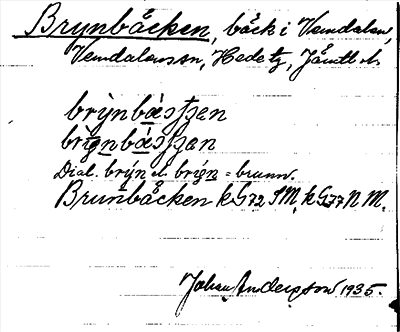 Brynbäcken, bäck i Vemdalen,
Vemdalens sn, Hede tg, Jämtl. l.
brynbàsʃʒen
brignbàsʃʒen
Dial. brýn el. brign = brunn.
Brunbäcken kG72 SM. kG77 NM.
Johan Anderson 1935.